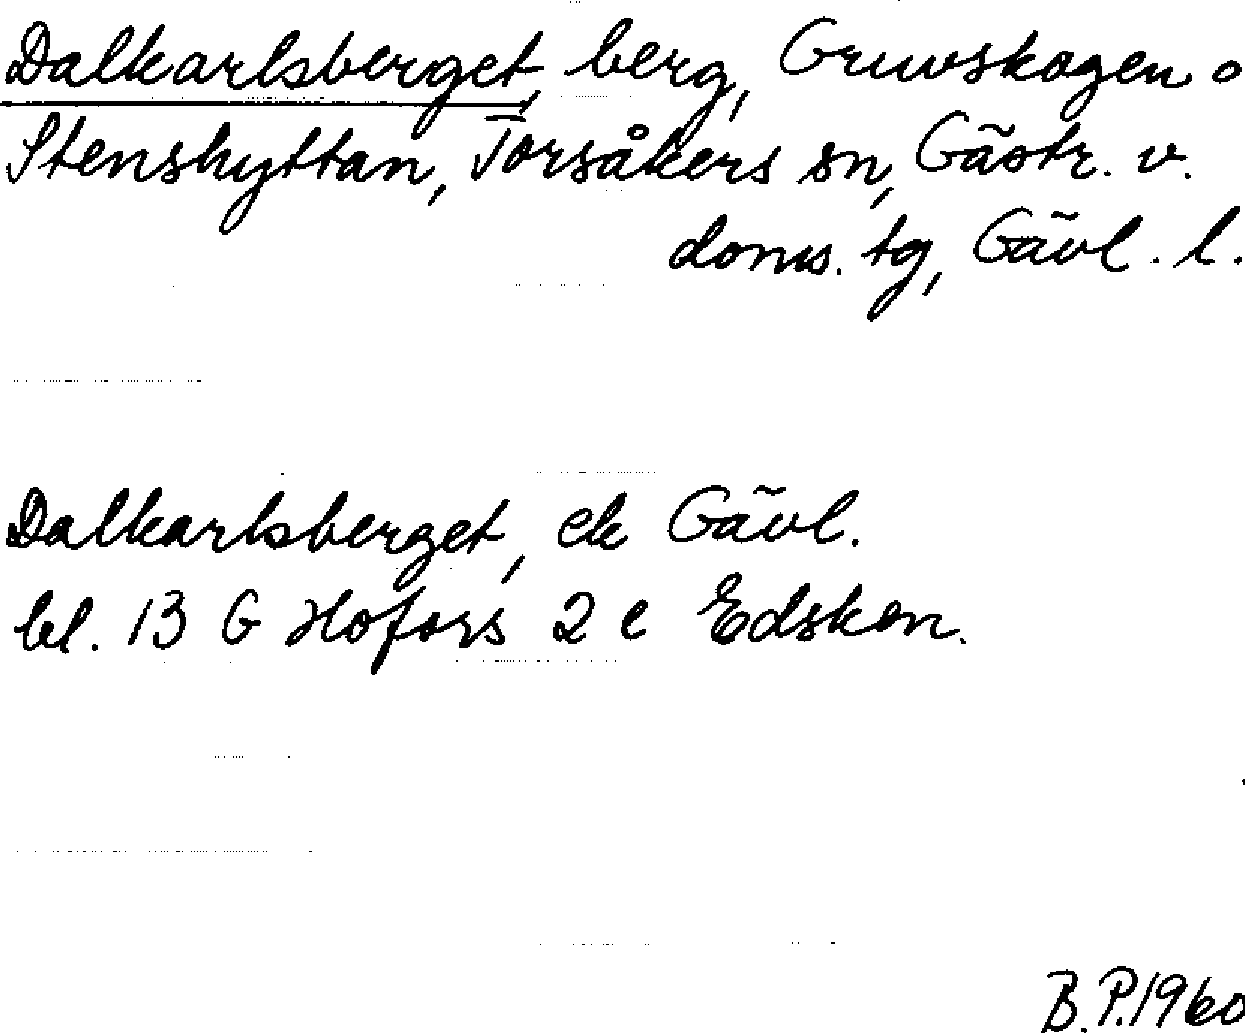 Dalkarlsberget, berg, Gruvskogen o
Stenshyttan, Torsåkers sn, Gästr. v.
doms. tg, Gävl. l.
Dalkarlsberget, ek Gävl.
bl. 13 G Hofors 2 e Edsken.
B.P.1960